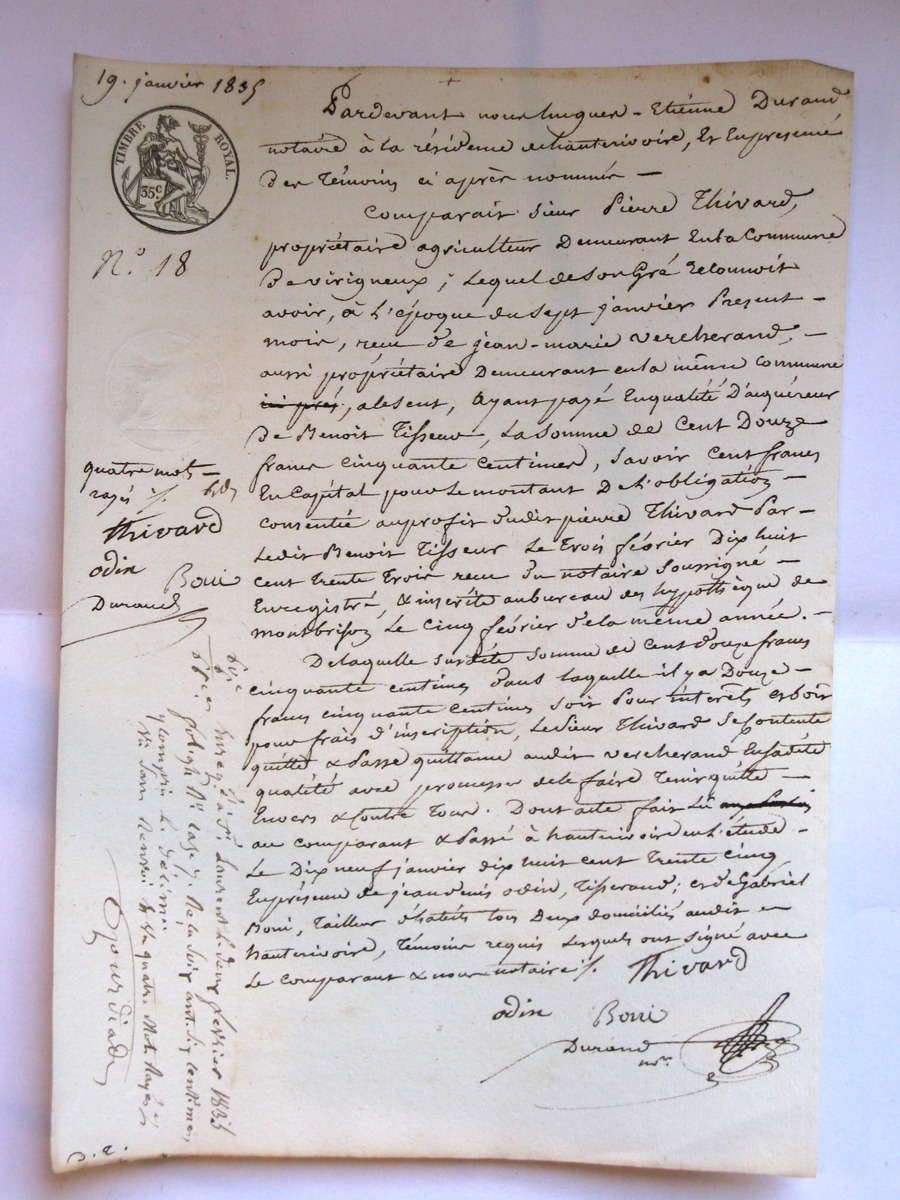 19. janvier 1835
TIMBRE ROYAL.
35 c.
N.° 18
Pardevant nous hugues-Etienne Durand
notaire à la résidence de hauterivoire, Et En présence
Des Témoins ci après nommés —
Comparait Sieur Pierre Thivard,
propriétaire agriculteur Demeurant En la Commune
De virigneux ; Lequel de Son Gré reconnoit
avoir, à l'époque du Sept janvier Present —
mois, reçu de jean-marie vercherand, —
aussi propriétaire Demeurant en la même Commune
ici près, absent, Ayant payé En qualité D'acquéreur
De Benoit Tisseur, La Somme de Cent Douze
francs cinquante Centimes, Savoir Cent francs
En Capital pour Le montant De L'obligation —
consentie au profit dudit pierre Thivard Par —
Ledit Benoit Tisseur Le Trois février Dix huit
cent trente Trois reçu du notaire Soussigné —
Enregistré, & inscrite au bureau des hypothèques de
montbrison Le cinq février de la même année. —
De laquelle susdite Somme de Cent douze francs
cinquante centimes dans laquelle il y a Douze —
francs cinquante Centimes Soit Pour interêts et Soit
pour frais d'inscription, Le Sieur Thivard Se Contente
quitte & Passe quittance audit vercherand En Sadite
qualité avec promesse de le faire Tenir quitte —
Envers & Contre Tous. Dont acte fait Lu
au comparant & Passé à hauterivoire En L'étude —
Le Dix neuf janvier dix huit cent trente cinq
En présence de jean denis odin, Tisserand ; et de Gabriel
Boni, Tailleur d'habits tous Deux domiciliés audit
hauterivoire, Témoins requis Lesquels ont signé avec
Le comparant & nous notaire ./. Thivard
odin Boni
Durand
nre.
quatre mots
rayés ./.
Thivard
odin
Boni
Durand
Enregé à St. Laurent Le deux février 1835
folio Ve case 7. Reçu Soix ant. Six centimes,
y compris Le Décime